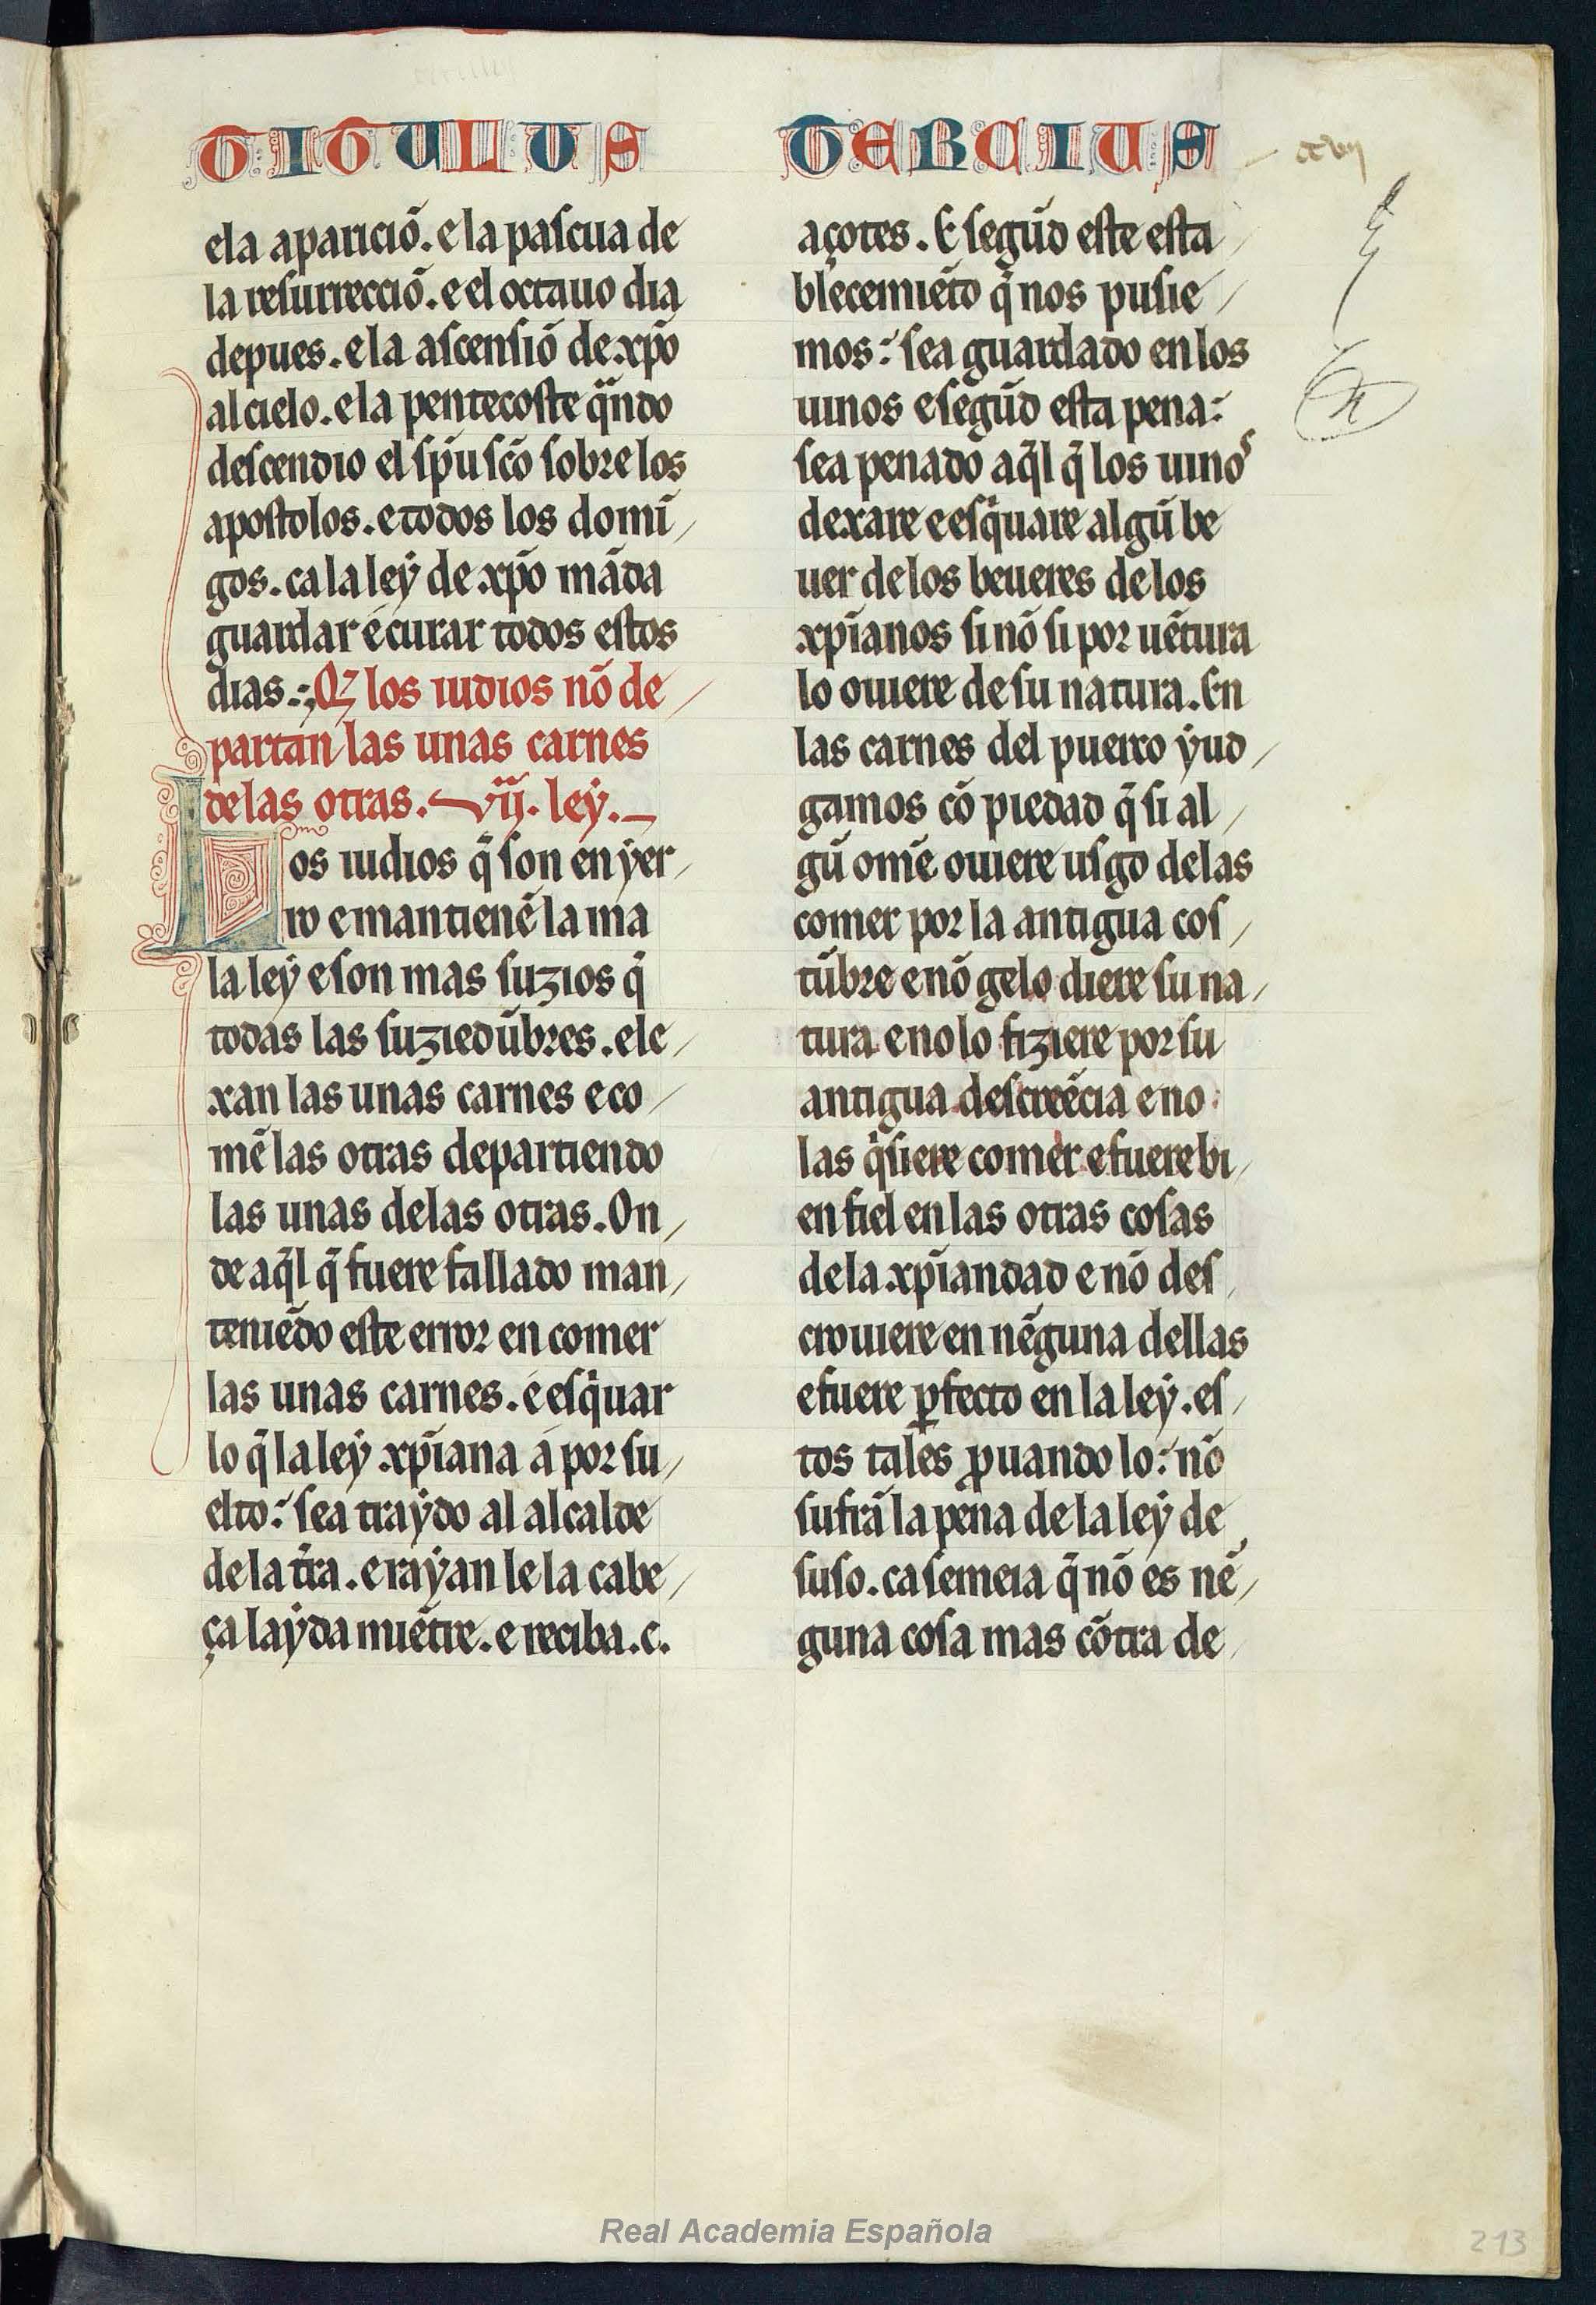 TITULUS TERCIUS
ccvij
e la aparició. e la paſcua de
la reſurrecció. e el octauo dia
depues. e la aſcenſiõ de xp̃o
al cielo. e la pentecoſte q̃ndo
deſcendio el ſp̃u ſc̃o ſobre los
apoſtolos. e todos los domĩ
gos. ca la leẏ de xp̃o mãda
guardar é curar todos eſtos
dias. Q̃ los iudios nõ de
partan las unas carnes
de las otras. vij. leẏ.
Los iudios q̃ ſon en ẏer
ro e mantienẽ la ma
la leẏ e ſon mas ſuzios q̃
todas las ſuziedũbres. ele
xan las unas carnes e co
mẽ las otras departiendo
las unas de las otras. On
de aq̃l q̃ fuere fallado man
teniẽdo eſte error en comer
las unas carnes. é eſq̃uar
lo q̃ la leẏ xp̃iana á por ſu
elto: ſea traẏdo al alcalde
de la t̃ra. e raẏan le la cabe
ça laẏda miẽtre. e reciba .c.
açotes. E ſegũd eſte eſta
blecemiẽto q̃ nos puſie
mos: ſea guardado en los
uinos e ſegũd eſta pena:
ſea penado aq̃l q̃ los uinos
dexare e eſq̃uare algũ be
uer de los beueres de los
xp̃ianos ſi nõ ſi por uẽtura
lo ouiere de ſu natura. En
las carnes del puerco ẏud
gamos cõ piedad q̃ ſi al
gũ om̃e ouiere uſgo de las
comer por la antigua coſ
tũbre e nõ gelo diere ſu na
tura e no lo fiziere por ſu
antigua deſcreẽcia e no
las q̃ſiere comer e fuere bi
en fiel en las otras coſas
de la xp̃iandad e nõ deſ
crouiere en nẽguna dellas
e fuere p̲fecto en la leẏ. eſ
tos tales ꝓuando lo: nõ
ſufrã la pena de la leẏ de
ſuſo. ca ſemeia q̃ nõ es nẽ
guna coſa mas cõtra de
Real Academia Española
213